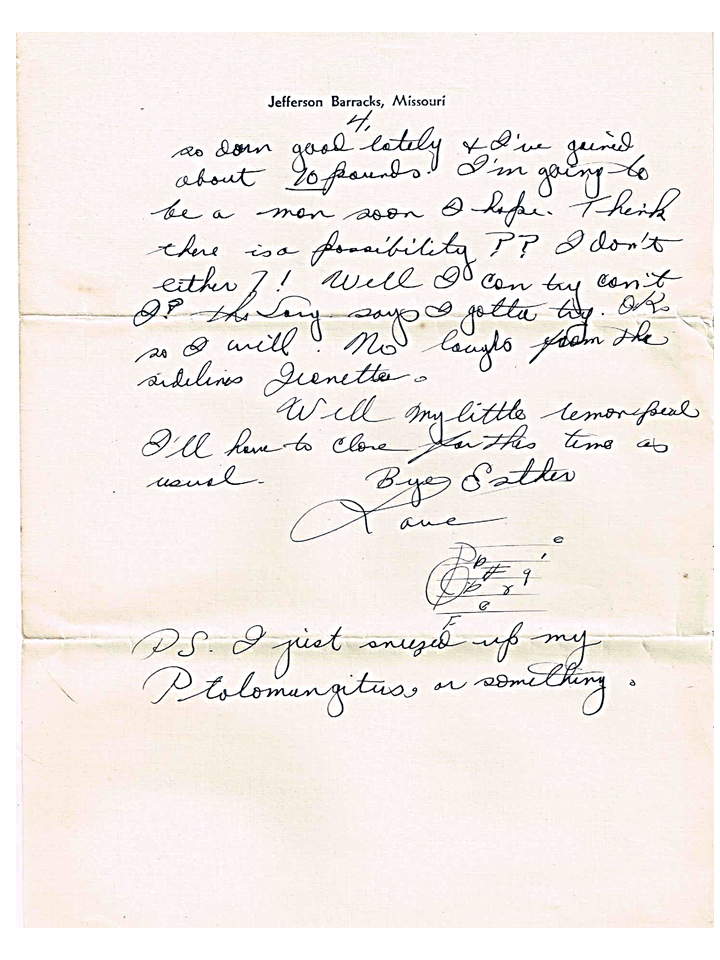 Jefferson Barracks, Missouri
4.
so darn good lately & I've gained
about 20 pounds. I'm going to
be a man soon I hope. Think
there is a possibility?? I don't
either?! Well I can try can't
I? the Sarg says I gotta try. OK
so I will. No laughs from the
sidelines Jeanette.
Well my little lemon peel
I'll have to close for this time as
usual. Bye Esther
Love
PS. I just snuzed up my
Ptolomungitus, or something.